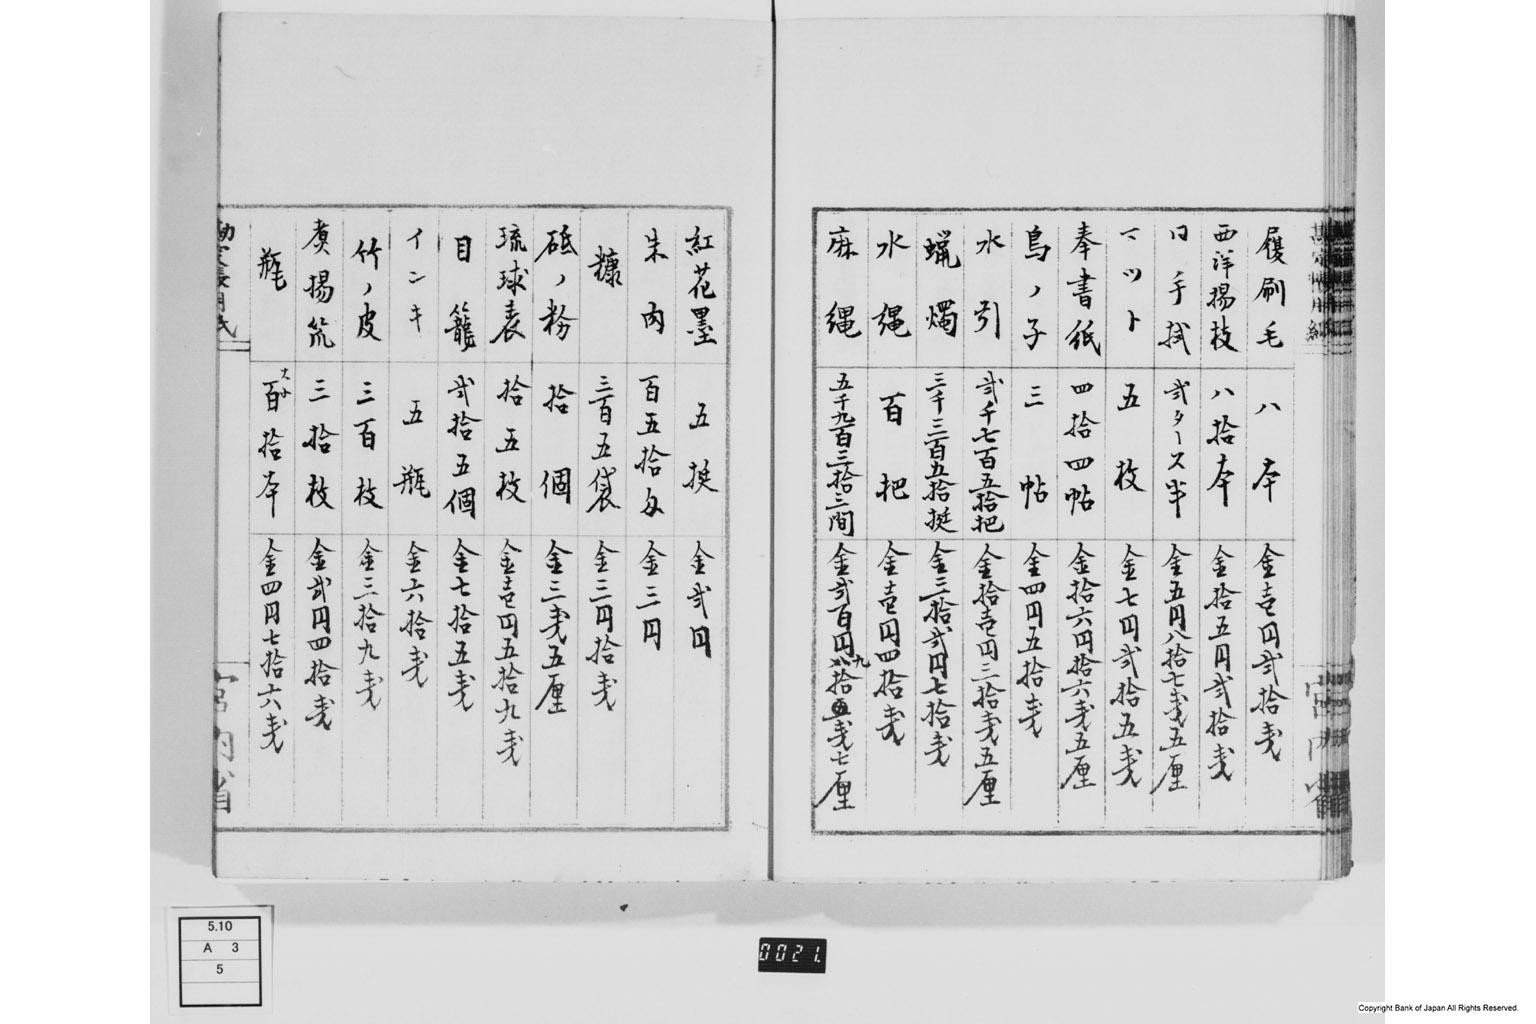 履刷毛 八本 金壱円弐拾銭
西洋揚枝 八拾本 金拾五円弐拾銭
同手拭 弐タース半 金五円八拾七銭五厘
マット 五枚 金七円弐拾五銭
奉書紙 四拾四帖 金拾六円拾六銭五厘
鳥ノ子 三帖 金四円五拾銭
水引 弐千七百五拾把 金拾壱円三拾銭五厘
蝋燭 三千三百五拾挺 金三拾弐円七拾銭
水縄 百把 金壱円四拾銭
麻縄 五千九百三拾三間 金弐百円九拾銭七厘
勘定帳用紙
宮内省
紅花墨 五挺 金弐円
朱肉 百五拾匁 金三円
糠 三百五袋 金三円拾銭
砥ノ粉 拾個 金三銭五厘
琉球表 拾五枚 金壱円五拾九銭
目籠 弐拾五個 金七拾五銭
インキ 五瓶 金六拾銭
竹ノ皮 三百枚 金三拾九銭
揚笊 三拾枚 金弐円四拾銭
瓶 大小 百拾本 金四円七拾六銭
勘定帳用紙
宮内省
5.10
A 3
5
0021.
Copyright Bank of Japan All Rights Reserved.